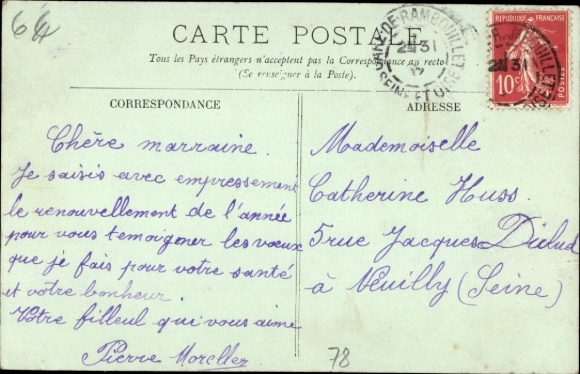 64
CARTE POSTALE
Tous les Pays étrangers n'acceptent pas la Correspondance au recto
(Se renseigner à la Poste).
RÉPUBLIQUE FRANÇAISE
POSTES
10c
DE RAMBOUILLET
SEINE ET OISE
31
CORRESPONDANCE
Chère marraine.
Je saisis avec empressement
le renouvellement de l'année
pour vous temoigner les vœux
que je fais pour votre santé
et votre bonheur.
Votre filleul qui vous aime
Pierre
ADRESSE
Mademoiselle
Catherine Huss.
5 rue Jacques Dulud
à Neuilly (Seine)
78